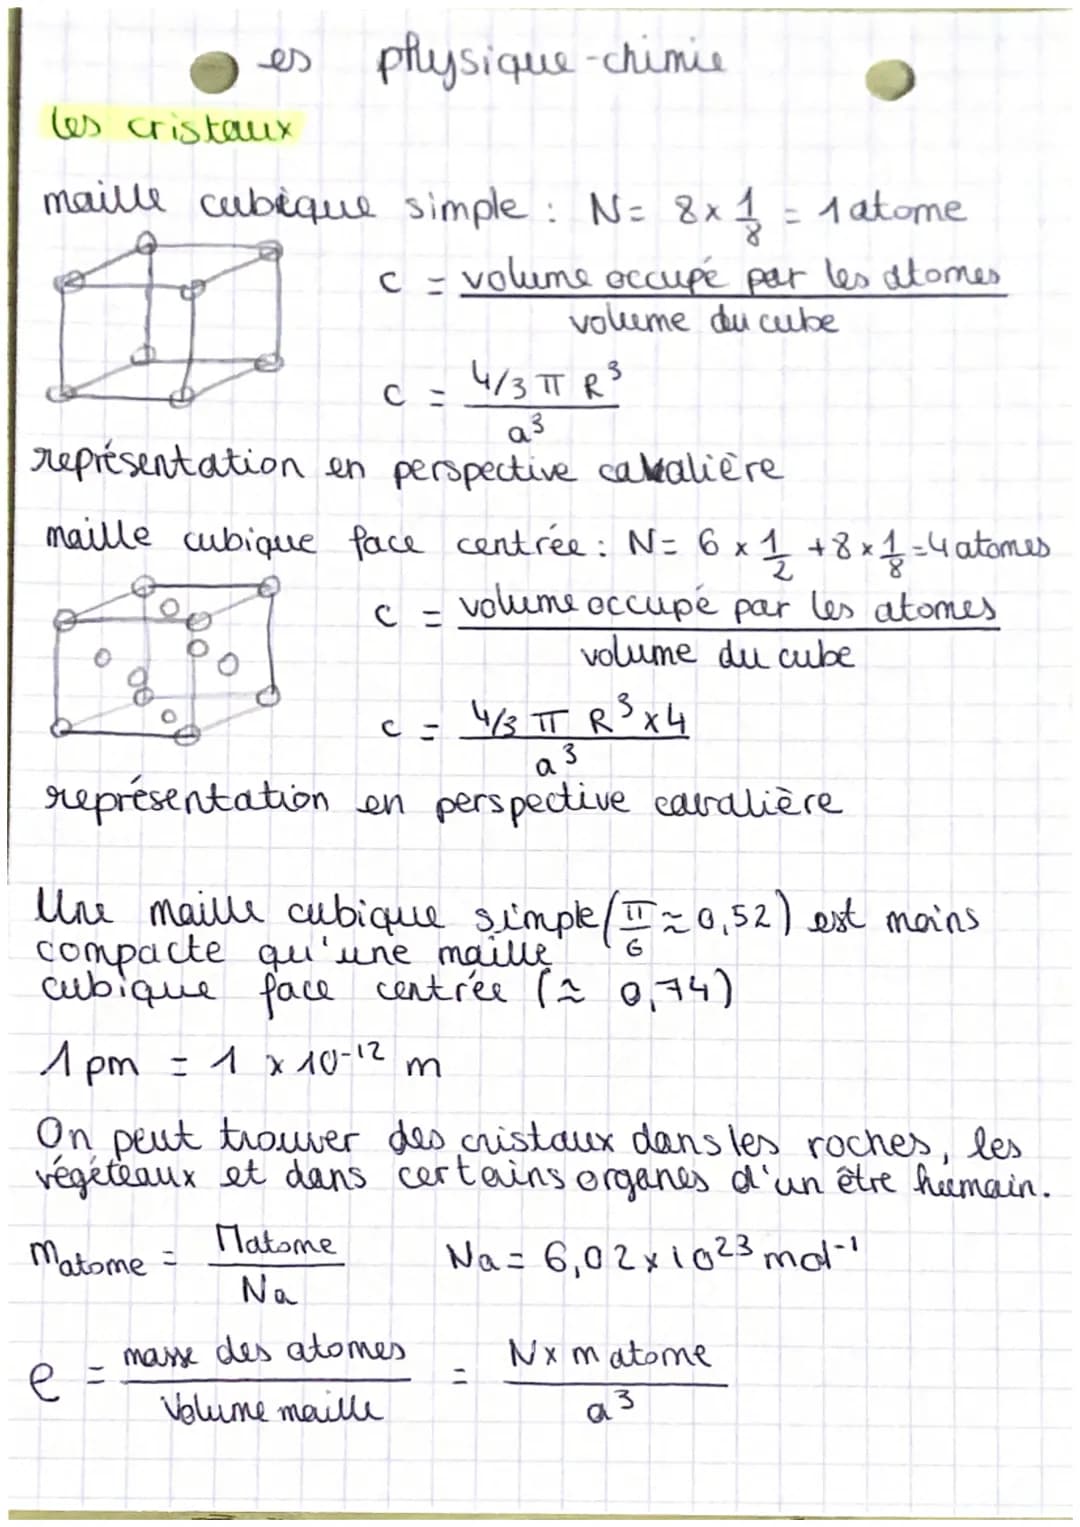 es physique-chimie
les cristaux
maille cubique simple : N = 8 x 1/8 = 1 atome
c = volume occupé par les atomes / volume du cube
c = 4/3 π R³ / a³
représentation en perspective cavalière
maille cubique face centrée : N = 6 x 1/2 + 8 x 1/8 = 4 atomes
c = volume occupé par les atomes / volume du cube
c = 4/3 π R³ x 4 / a³
représentation en perspective cavalière
Une maille cubique simple (π/6 ≈ 0,52) est moins
compacte qu'une maille
cubique face centrée (≈ 0,74)
1 pm = 1 x 10⁻¹² m
On peut trouver des cristaux dans les roches, les
végéteaux et dans certains organes d'un être humain.
matome = Matome / Na Na = 6,02 x 10²³ mol⁻¹
e = masse des atomes / Volume maille = N x m atome / a³